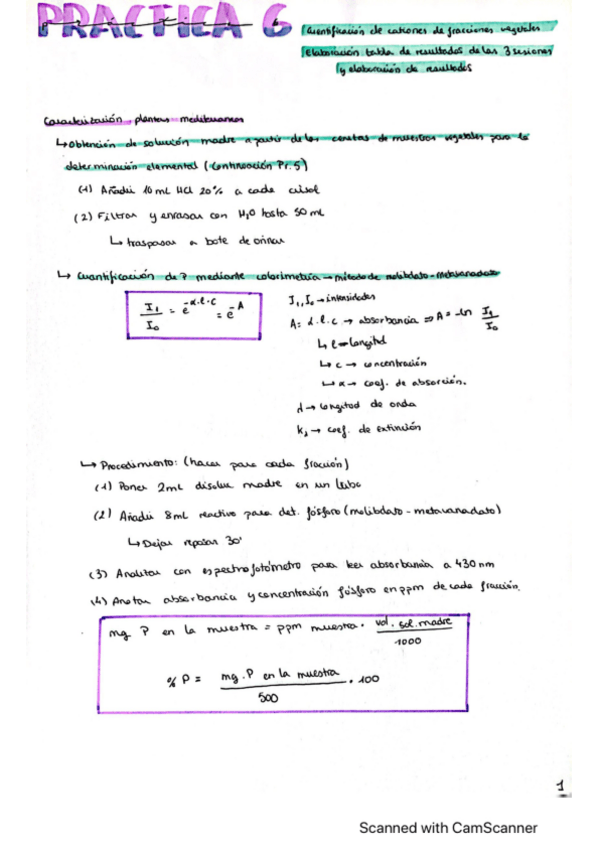 PRACTICA 6
Cuantificación de cationes de fracciones vegetales
Elaboración tabla de resultados de las 3 sesiones
y elaboración de resultados
Caracterización plantas mediterraneas
↳ Obtención de solución madre a partir de las cenizas de muestras vegetales para la
determinación elemental (Continuación Pr.5)
(1) Añadir 10 mL HCl 20% a cada crisol
(2) Filtrar y enrasar con H₂O hasta 50 mL
↳ traspasar a bote de orina
↳ Cuantificación de P mediante colorimetría → método de molibdato-metavanadato
I₁/I₀ = e^-α.l.c = e^-A
I₁, I₀ → intensidades
A = α.l.c → absorbancia ⇒ A = -ln I₁/I₀
↳ l → longitud
↳ c → concentración
↳ α → coef. de absorción.
λ → longitud de onda
k, → coef. de extinción
↳ Procedimiento: (hacer para cada fracción)
(1) Poner 2mL disoluc madre en un tubo
(2) Añadir 8mL reactivo para det. fósforo (molibdato-metavanadato)
↳ Dejar reposar 30'
(3) Analizar con espectrofotómetro para leer absorbancia a 430 nm
(4) Anotar absorbancia y concentración fósforo en ppm de cada fracción.
mg P en la muestra = ppm muestra . vol. sol. madre / 1000
% P = mg. P en la muestra / 500 . 100
1
Scanned with CamScanner